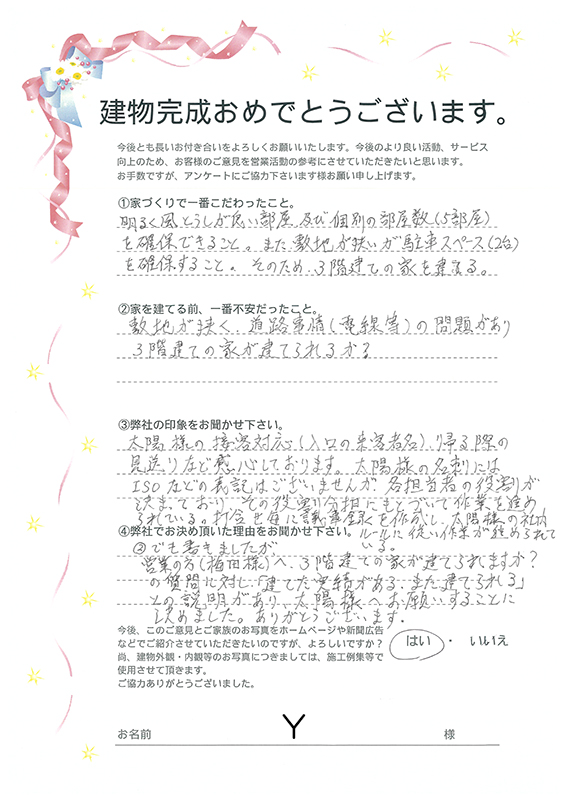 建物完成おめでとうございます。
今後とも長いお付き合いをよろしくお願いいたします。今後のより良い活動、サービス
向上のため、お客様のご意見を営業活動の参考にさせていただきたいと思います。
お手数ですが、アンケートにご協力下さいます様お願い申し上げます。
①家づくりで一番こだわったこと。
明るく風とうしが良い部屋及び個別の部屋数(5部屋)
を確保できること。また敷地が狭いが駐車スペース(2台)
を確保すること。そのため、3階建ての家を建てる。
②家を建てる前、一番不安だったこと。
敷地が狭く、道路事情(電線等)の問題があり
3階建ての家が建てられるかる
③弊社の印象をお聞かせ下さい。
太陽様の接客対応(入口の来客者名)、帰る際の
見送りなど感心しております。太陽様の名刺には
ISOなどの表記はございませんが、各担当者の役割が
決まっており、その役割分担にもとづいて作業を進め
られている。打合せ毎に議事録を作成し、太陽様の社内
ルールに従い作業が進められて
いる。
④弊社でお決め頂いた理由をお聞かせ下さい。
②でも書きましたが、
営業の方(稲田様)へ、3階建ての家が建てられますか?
の質問に対し、「建てた実績がある、また建てられる」
との説明があり、太陽様へお願いすることに
決めました。ありがとうございます。
今後、このご意見とご家族のお写真をホームページや新聞広告
などでご紹介させていただきたいのですが、よろしいですか?
はい ・ いいえ
尚、建物外観・内観等のお写真につきましては、施工例集等で
使用させて頂きます。
ご協力ありがとうございました。
お名前 Y 様